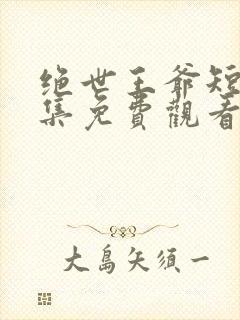 绝世王爷短
集免費觀看
大島矢須一